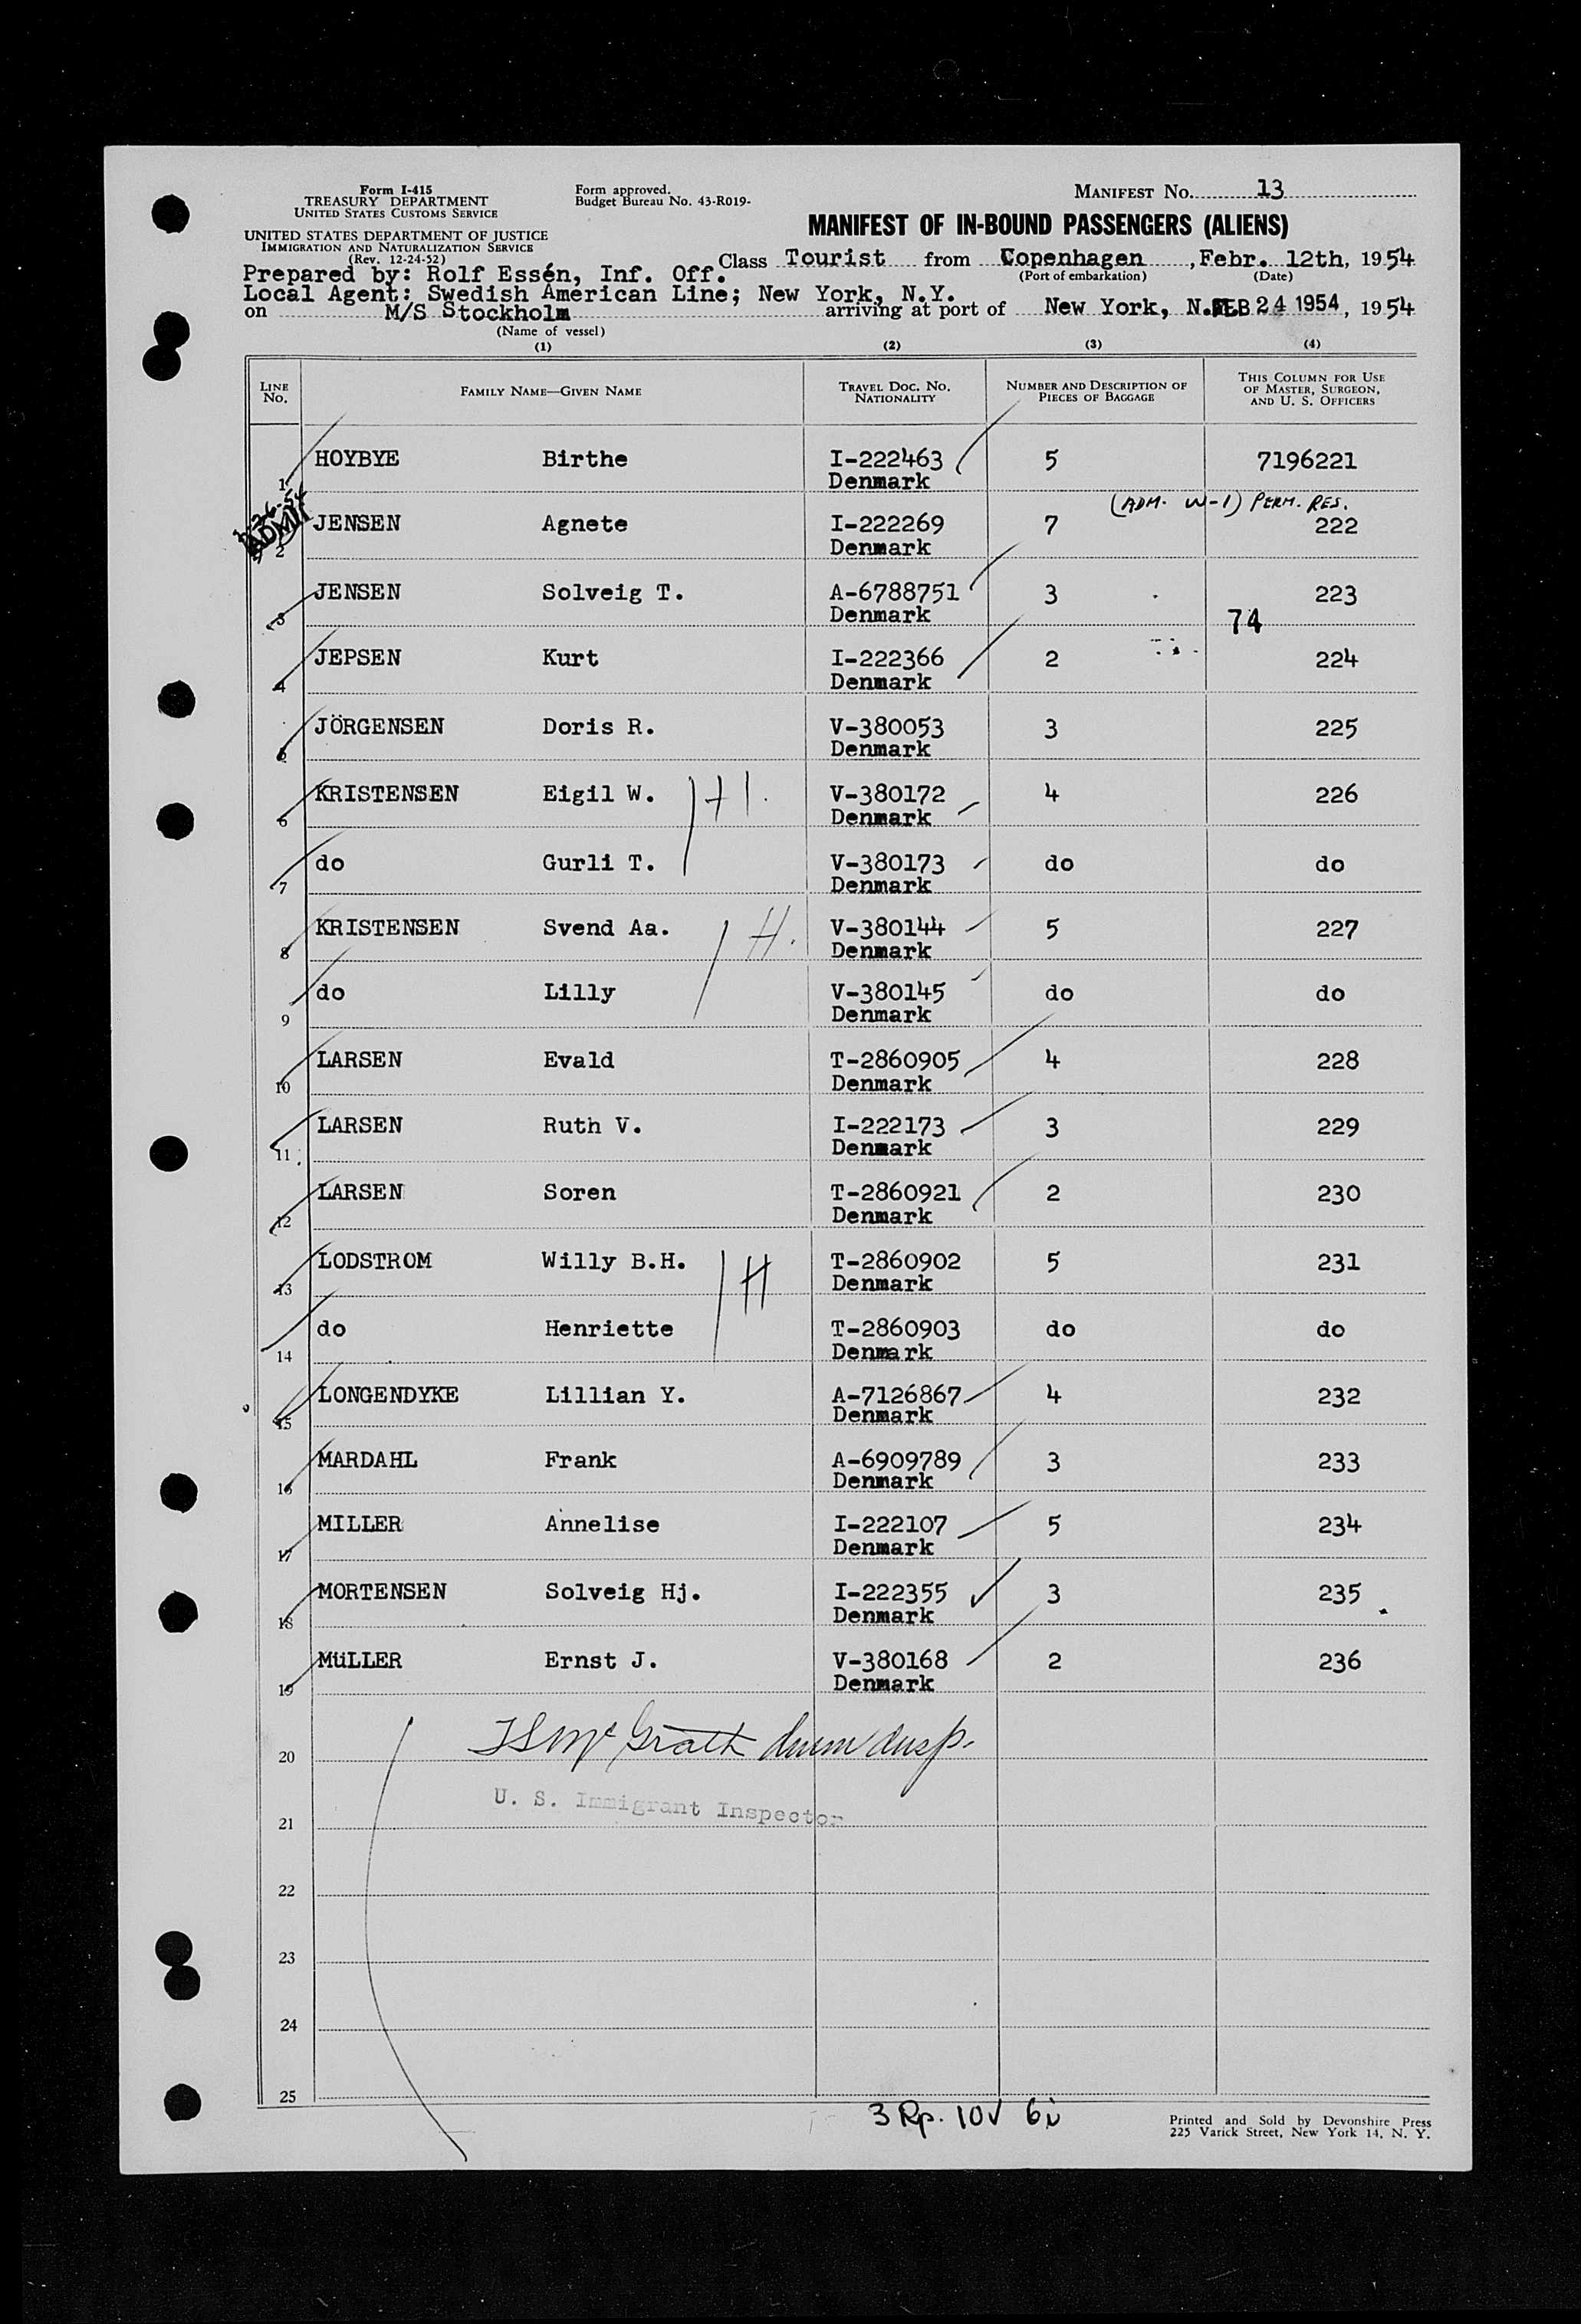 Form I-415
TREASURY DEPARTMENT
UNITED STATES CUSTOMS SERVICE
UNITED STATES DEPARTMENT OF JUSTICE
IMMIGRATION AND NATURALIZATION SERVICE
(Rev. 12-24-52)
Form approved.
Budget Bureau No. 43-R019-
MANIFEST No. 13
MANIFEST OF IN-BOUND PASSENGERS (ALIENS)
Prepared by: Rolf Essén, Inf. Off. Class Tourist from Copenhagen, Febr. 12th, 1954
(Port of embarkation) (Date)
Local Agent: Swedish American Line; New York, N.Y.
on M/S Stockholm arriving at port of New York, N. FEB 24 1954, 1954
(Name of vessel)
(1) (2) (3) (4)
LINE No. FAMILY NAME—GIVEN NAME TRAVEL DOC. NO. NATIONALITY NUMBER AND DESCRIPTION OF PIECES OF BAGGAGE THIS COLUMN FOR USE OF MASTER, SURGEON, AND U. S. OFFICERS
1 HOYBYE Birthe I-222463 5 7196221
Denmark
(ADM. W-1) PERM. RES.
ADMIT
2 JENSEN Agnete I-222269 7 222
Denmark
3 JENSEN Solveig T. A-6788751 3 223
Denmark
74
4 JEPSEN Kurt I-222366 2 224
Denmark
5 JÖRGENSEN Doris R. V-380053 3 225
Denmark
6 KRISTENSEN Eigil W. H. V-380172 4 226
Denmark
7 do Gurli T. V-380173 do do
Denmark
8 KRISTENSEN Svend Aa. H. V-380144 5 227
Denmark
9 do Lilly V-380145 do do
Denmark
10 LARSEN Evald T-2860905 4 228
Denmark
11 LARSEN Ruth V. I-222173 3 229
Denmark
12 LARSEN Soren T-2860921 2 230
Denmark
13 LODSTROM Willy B.H. H T-2860902 5 231
Denmark
14 do Henriette T-2860903 do do
Denmark
15 LONGENDYKE Lillian Y. A-7126867 4 232
Denmark
16 MARDAHL Frank A-6909789 3 233
Denmark
17 MILLER Annelise I-222107 5 234
Denmark
18 MORTENSEN Solveig Hj. I-222355 3 235
Denmark
19 MüLLER Ernst J. V-380168 2 236
Denmark
McGrath
20
U. S. Immigrant Inspector
21
22
23
24
25
3 Rp. 10V 6i
Printed and Sold by Devonshire Press
225 Varick Street, New York 14, N. Y.